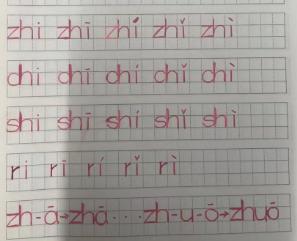 zhi zhī zhí zhǐ zhì
chi chī chí chǐ chì
shi shī shí shǐ shì
ri rī rí rǐ rì
zh-ā→zhā··· zh-u-ō→zhuō